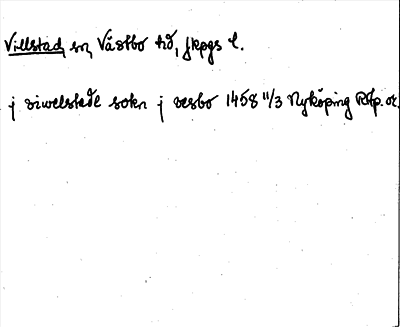 Villstad sn, Västbo hd, Jkpgs l.
j viwelstadl sokn j vesbo 1458 11/3 Nyköping RAp. or.